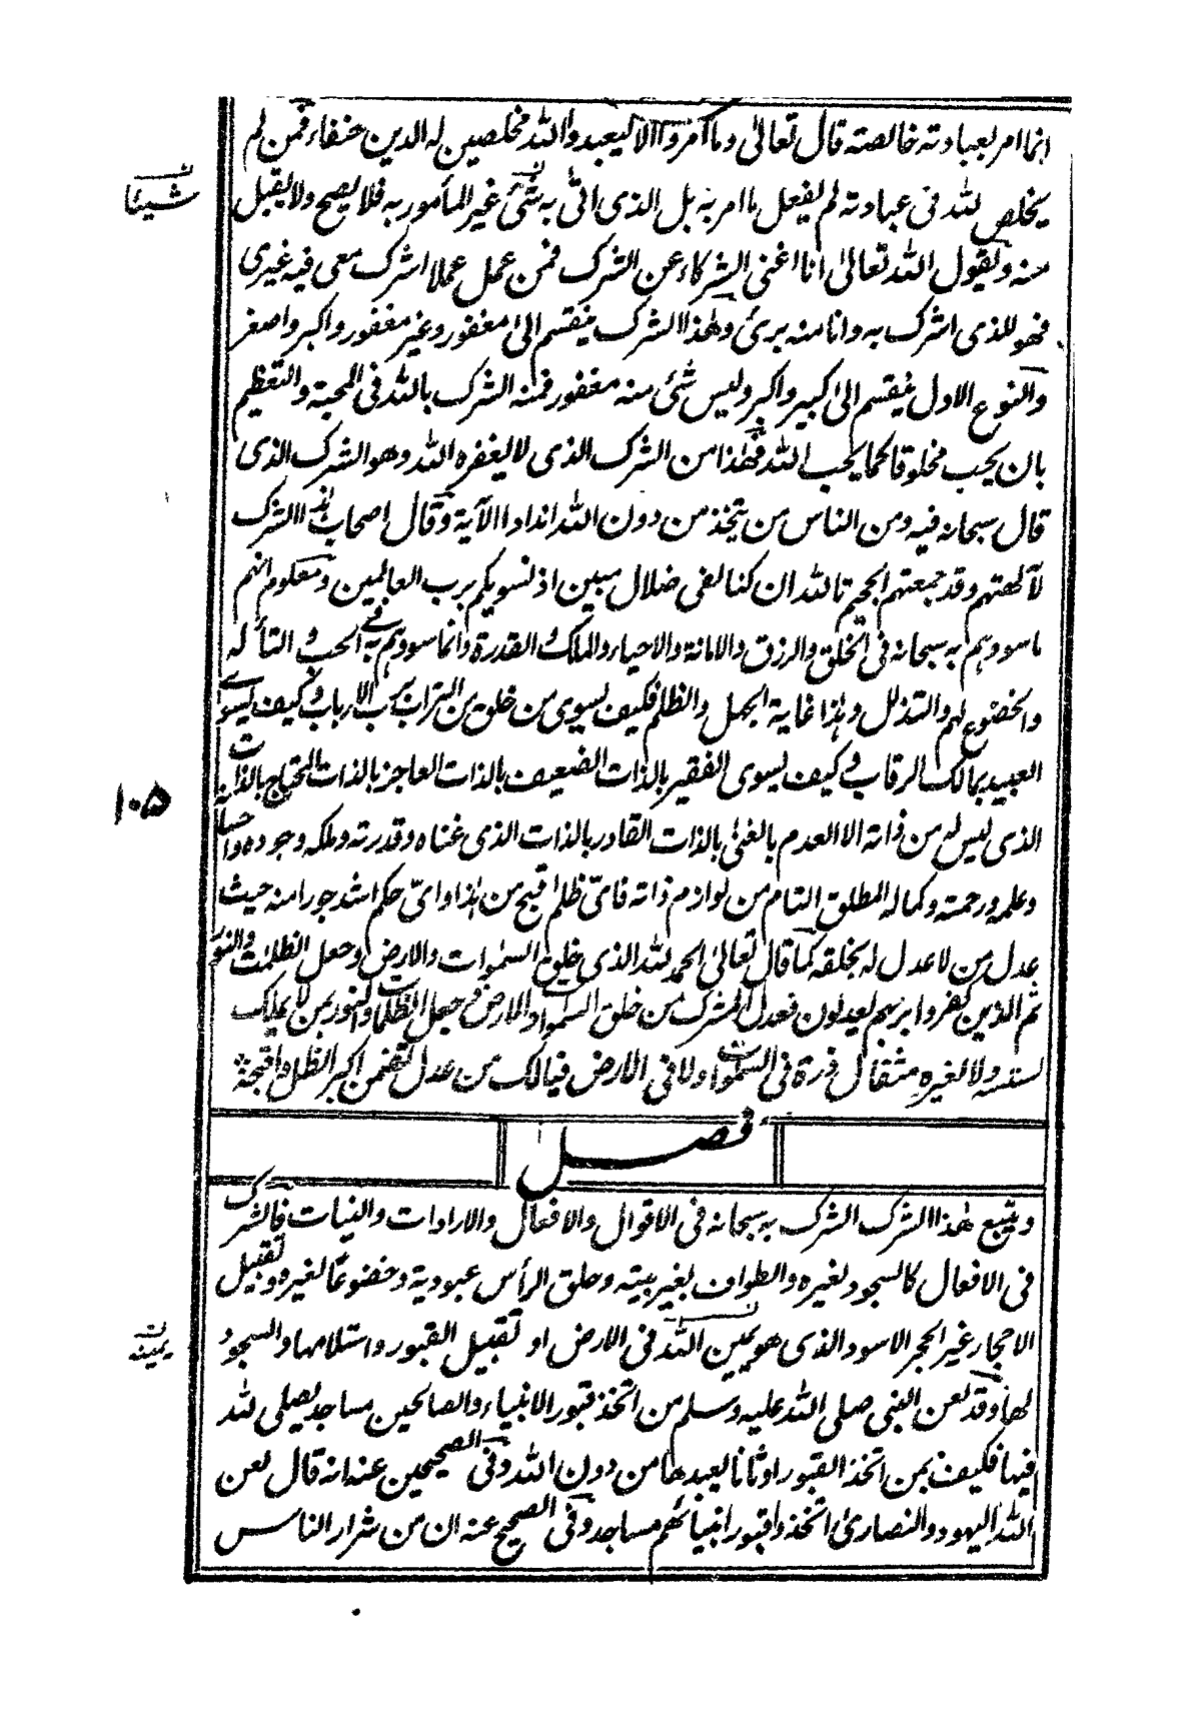 انما امر بعبادته خالصته قال تعالیٰ وما امروا الا لیعبدوا اللہ مخلصین له الدین حنفاء فمن لم
یخلص للہ فی عبادته لم یفعل ما امر به بل الذی اتیٰ به شیٔ غیر المأمور به فلا یصح ولا یقبل
شیئا
منه ویقول اللہ تعالیٰ انا اغنی الشرکاء عن الشرک فمن عمل عملا اشرک معی فیه غیری
فهو للذی اشرک به وانا منه بریٔ وهٰذا الشرک ینقسم الیٰ مغفور وغیر مغفور واکبر واصغر
والنوع الاول ینقسم الیٰ کبیر واکبر ولیس شیٔ منه مغفور فمنه الشرک باللہ فی المحبة والتعظیم
بان یحب مخلوقا کما یحب اللہ فهٰذا من الشرک الذی لا یغفره اللہ وهو الشرک الذی
قال سبحانه فیه ومن الناس من یتخذ من دون اللہ اندادا الآیة وقال اصحاب هٰذا الشرک
لآلهتهم وقد جمعتهم الجحیم تاللہ ان کنا لفی ضلال مبین اذ نسویکم برب العالمین ومعلوم انهم
ما سووهم به سبحانه فی الخلق والرزق والاماتة والاحیاء والملک والقدرة وانما سووهم به فی الحب والتأله
والخضوع لهم والتذلل وهٰذا غایة الجهل والظلم فکیف یسوی من خلق من التراب برب الارباب وکیف یسوی
العبید بمالک الرقاب وکیف یسوی الفقیر بالذات الضعیف بالذات العاجز بالذات المحتاج بالذات
۱۰۵
الذی لیس له من ذاته الا العدم بالغنیٰ بالذات القادر بالذات الذی غناه وقدرته وملکه وجوده واحسانه
وعلمه ورحمته وکماله المطلق التام من لوازم ذاته فایّ ظلم اقبح من هٰذا وایّ حکم اشد جورا منه حیث
عدل من لا عدل له بخلقه کما قال تعالیٰ الحمد للہ الذی خلق السمٰوات والارض وجعل الظلمٰت والنور
ثم الذین کفروا بربهم یعدلون فعدل المشرک من خلق السمٰوات والارض وجعل الظلمات والنور بمن لا یملک
لنفسه ولا لغیره مثقال ذرة فی السمٰوات ولا فی الارض فیالک من عدل تضمن اکبر الظلم واقبحه
فصل
ویتبع هٰذا الشرک الشرک به سبحانه فی الاقوال والافعال والارادات والنیات فالشرک
فی الافعال کالسجود لغیره والطواف بغیر بیته وحلق الرأس عبودیة وخضوعًا لغیره وتقبیل
الاحجار غیر الحجر الاسود الذی هو یمین اللہ فی الارض او تقبیل القبور واستلامها والسجود
یمینه
لها وقد لعن النبی صلی اللہ علیه وسلم من اتخذ قبور الانبیاء والصالحین مساجد یصلی للہ
فیها فکیف بمن اتخذ القبور اوثانا یعبدها من دون اللہ وفی الصحیحین عنه انه قال لعن
اللہ الیهود والنصاریٰ اتخذوا قبور انبیائهم مساجد وفی الصحیح عنه ان من شرار الناس